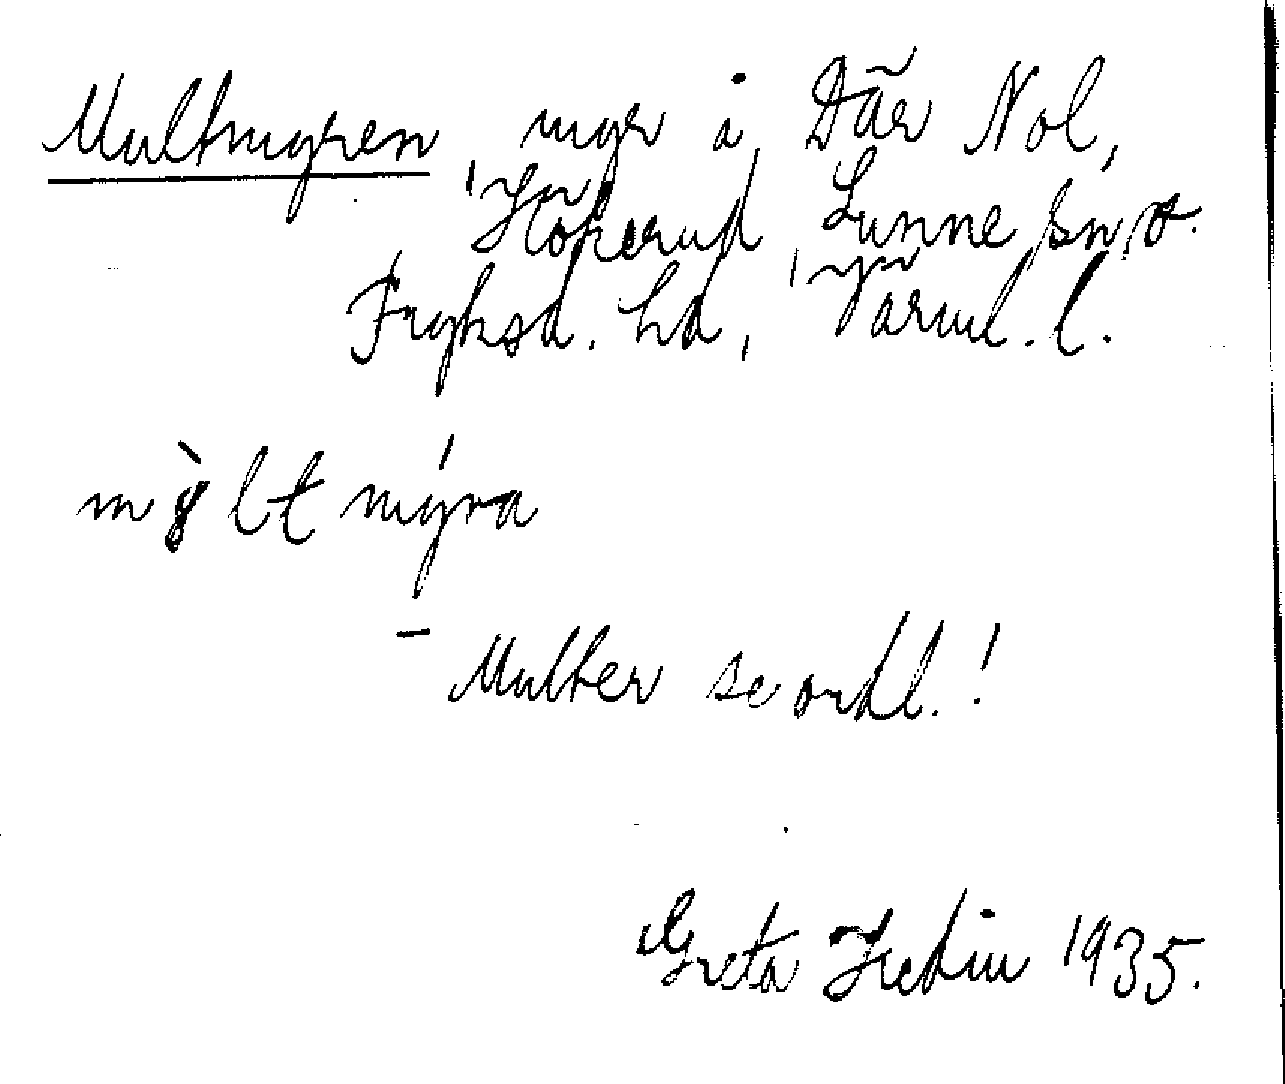 Multmyren, myr i Där Nol,
Hökerud, Lunne sn, Ö.
Fryksd. hd, Värml. l.
my̆̀ltmýra
– Multer se ordl.!
Greta Hedin 1935.